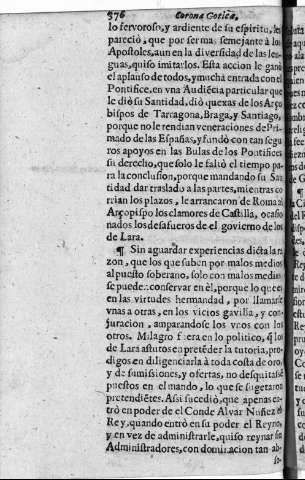 376 Corona Gotica,
lo fervoroso, y ardiente de su espiritu, les
pareciò, que por ser mas semejante à los
Apostoles, aun en la diversidad de las len-
guas, quiso imitarlos. Esta accion le ganò
el aplauso de todos, y mucha entrada con el
Pontifice, en vna Audiẽcia particular que
le diò su Santidad, diò quexas de los Arço
bispos de Tarragona, Braga, y Santiago,
porque no le rendian veneraciones de Pri-
mado de las Españas, y fundò con tan segu
ros apoyos en las Bulas de los Pontifices
su derecho, que solo le faltò el tiempo pa-
ra la conclusion, porque mandando su San
tidad dar traslado a las partes, mientras co
rrian los plazos, le arrancaron de Roma al
Arçopispo los clamores de Castilla, ocasio
nados los desafueros de el govierno de los
de Lara.
¶ Sin aguardar experiencias dicta la ra
zon, que los que suben por malos medios
al puesto soberano, solo con malos medios
se puede conservar en èl, porque lo que es
en las virtudes hermandad, por llamarse
vnas a otras, en los vicios gavilla, y con-
juracion, amparandose los vnos con los
otros. Milagro fuera en lo politico, q̃ los
de Lara astutos en pretẽder la tutoria, pro-
digos en diligenciarla à toda costa de oro,
y de sumissiones, y ofertas, no desquitasse
puestos en el mando, lo que se sugetaron
pretendiẽtes. Assi sucediò, que apenas en-
trò en poder de el Conde Alvar Nuñez el
Rey, quando entrò en su poder el Reyno,
y en vez de administrarle, quiso reynar sin
Administradores, con dominacion tan ab-